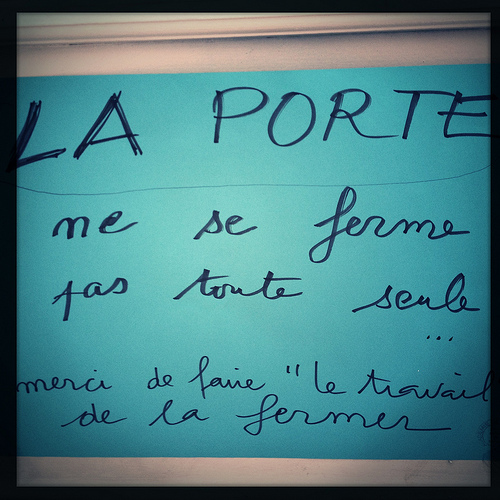 LA PORTE
ne se ferme
pas toute seule
...
merci de faire "le travail
de la fermer